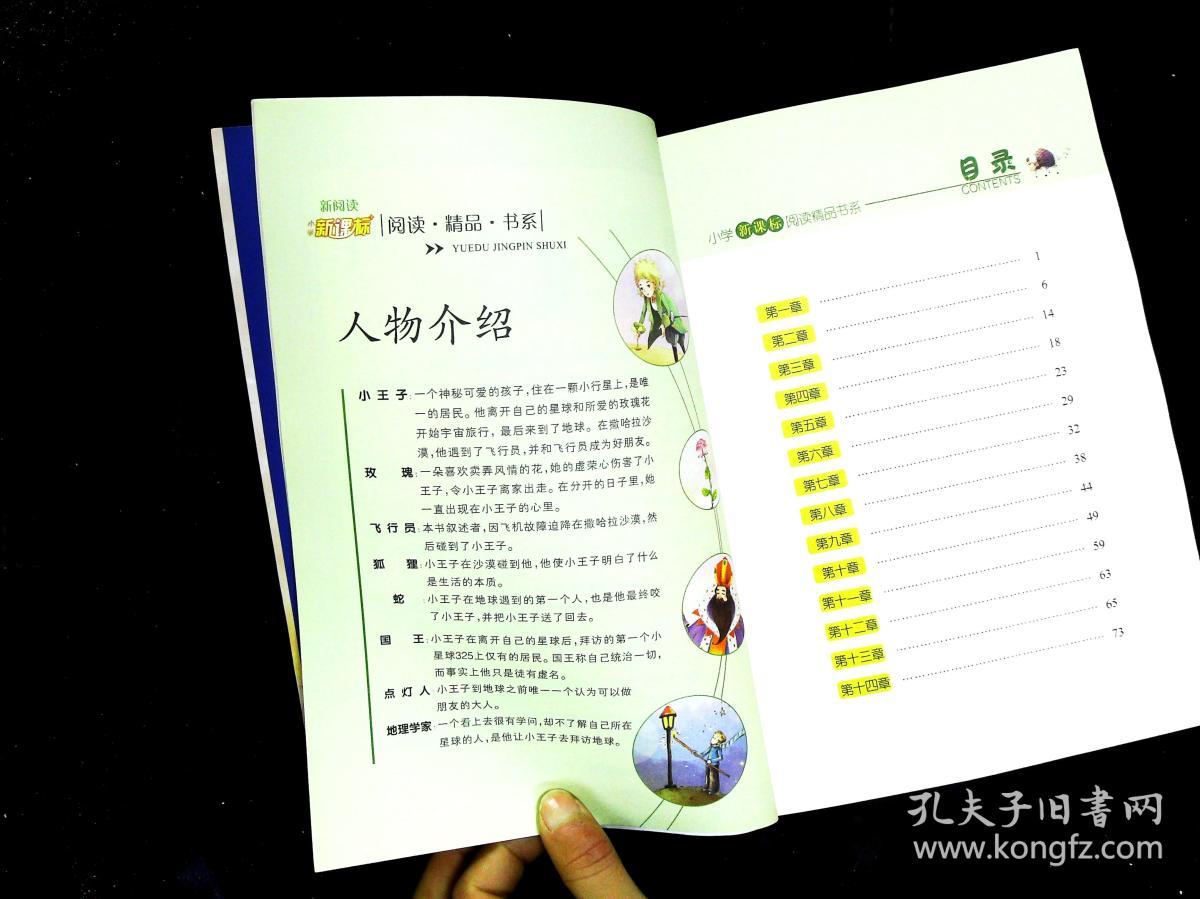 新阅读
小学
新课标
阅读·精品·书系
YUEDU JINGPIN SHUXI
人物介绍
小王子:一个神秘可爱的孩子,住在一颗小行星上,是唯
一的居民。他离开自己的星球和所爱的玫瑰花
开始宇宙旅行,最后来到了地球。在撒哈拉沙
漠,他遇到了飞行员,并和飞行员成为好朋友。
玫瑰:一朵喜欢卖弄风情的花,她的虚荣心伤害了小
王子,令小王子离家出走。在分开的日子里,她
一直出现在小王子的心里。
飞行员:本书叙述者,因飞机故障迫降在撒哈拉沙漠,然
后碰到了小王子。
狐狸:小王子在沙漠碰到他,他使小王子明白了什么
是生活的本质。
蛇:小王子在地球遇到的第一个人,也是他最终咬
了小王子,并把小王子送了回去。
国王:小王子在离开自己的星球后,拜访的第一个小
星球325上仅有的居民。国王称自己统治一切,
而事实上他只是徒有虚名。
点灯人:小王子到地球之前唯一一个认为可以做
朋友的大人。
地理学家:一个看上去很有学问,却不了解自己所在
星球的人,是他让小王子去拜访地球。
目录
CONTENTS
小学新课标阅读精品书系
第一章 1
第二章 6
第三章 14
第四章 18
第五章 23
第六章 29
第七章 32
第八章 38
第九章 44
第十章 49
第十一章 59
第十二章 63
第十三章 65
第十四章 73
孔夫子旧书网
www.kongfz.com